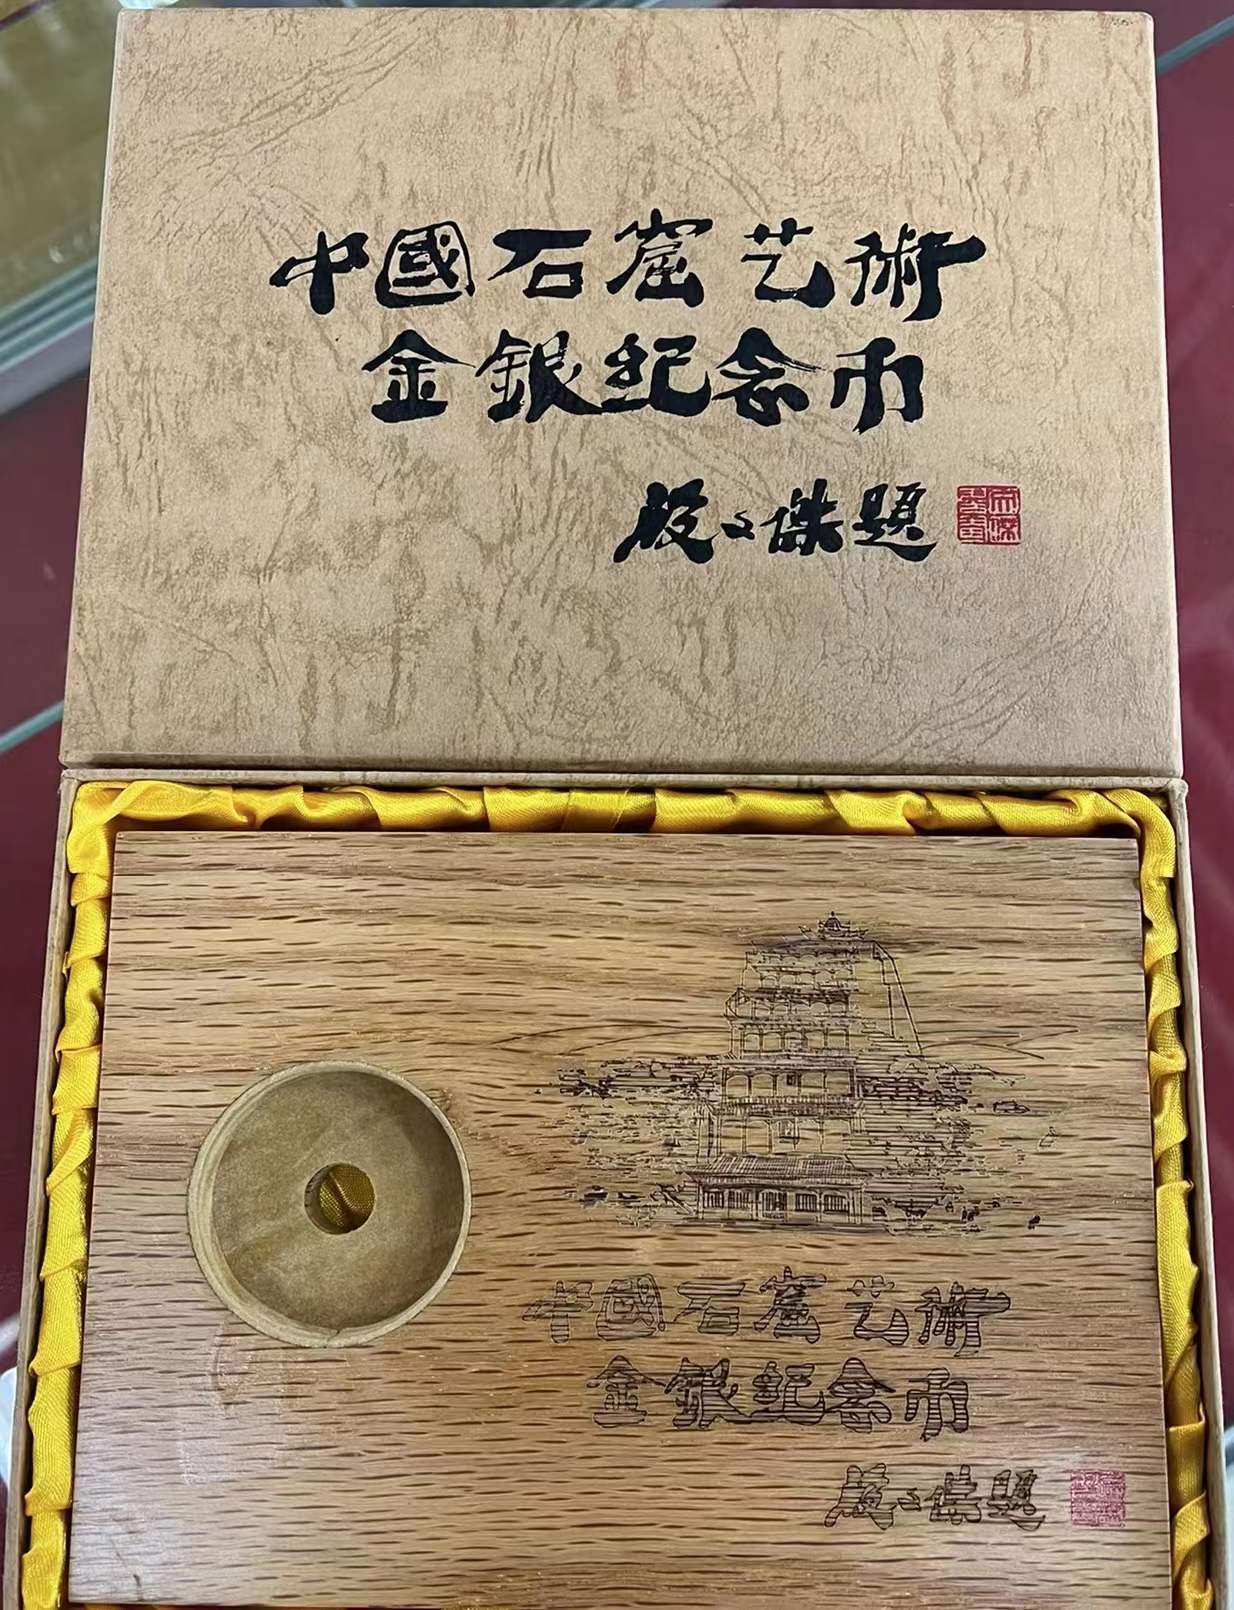 中國石窟艺術
金銀紀念币
段文傑題
中國石窟艺術
金銀紀念币
段文傑題